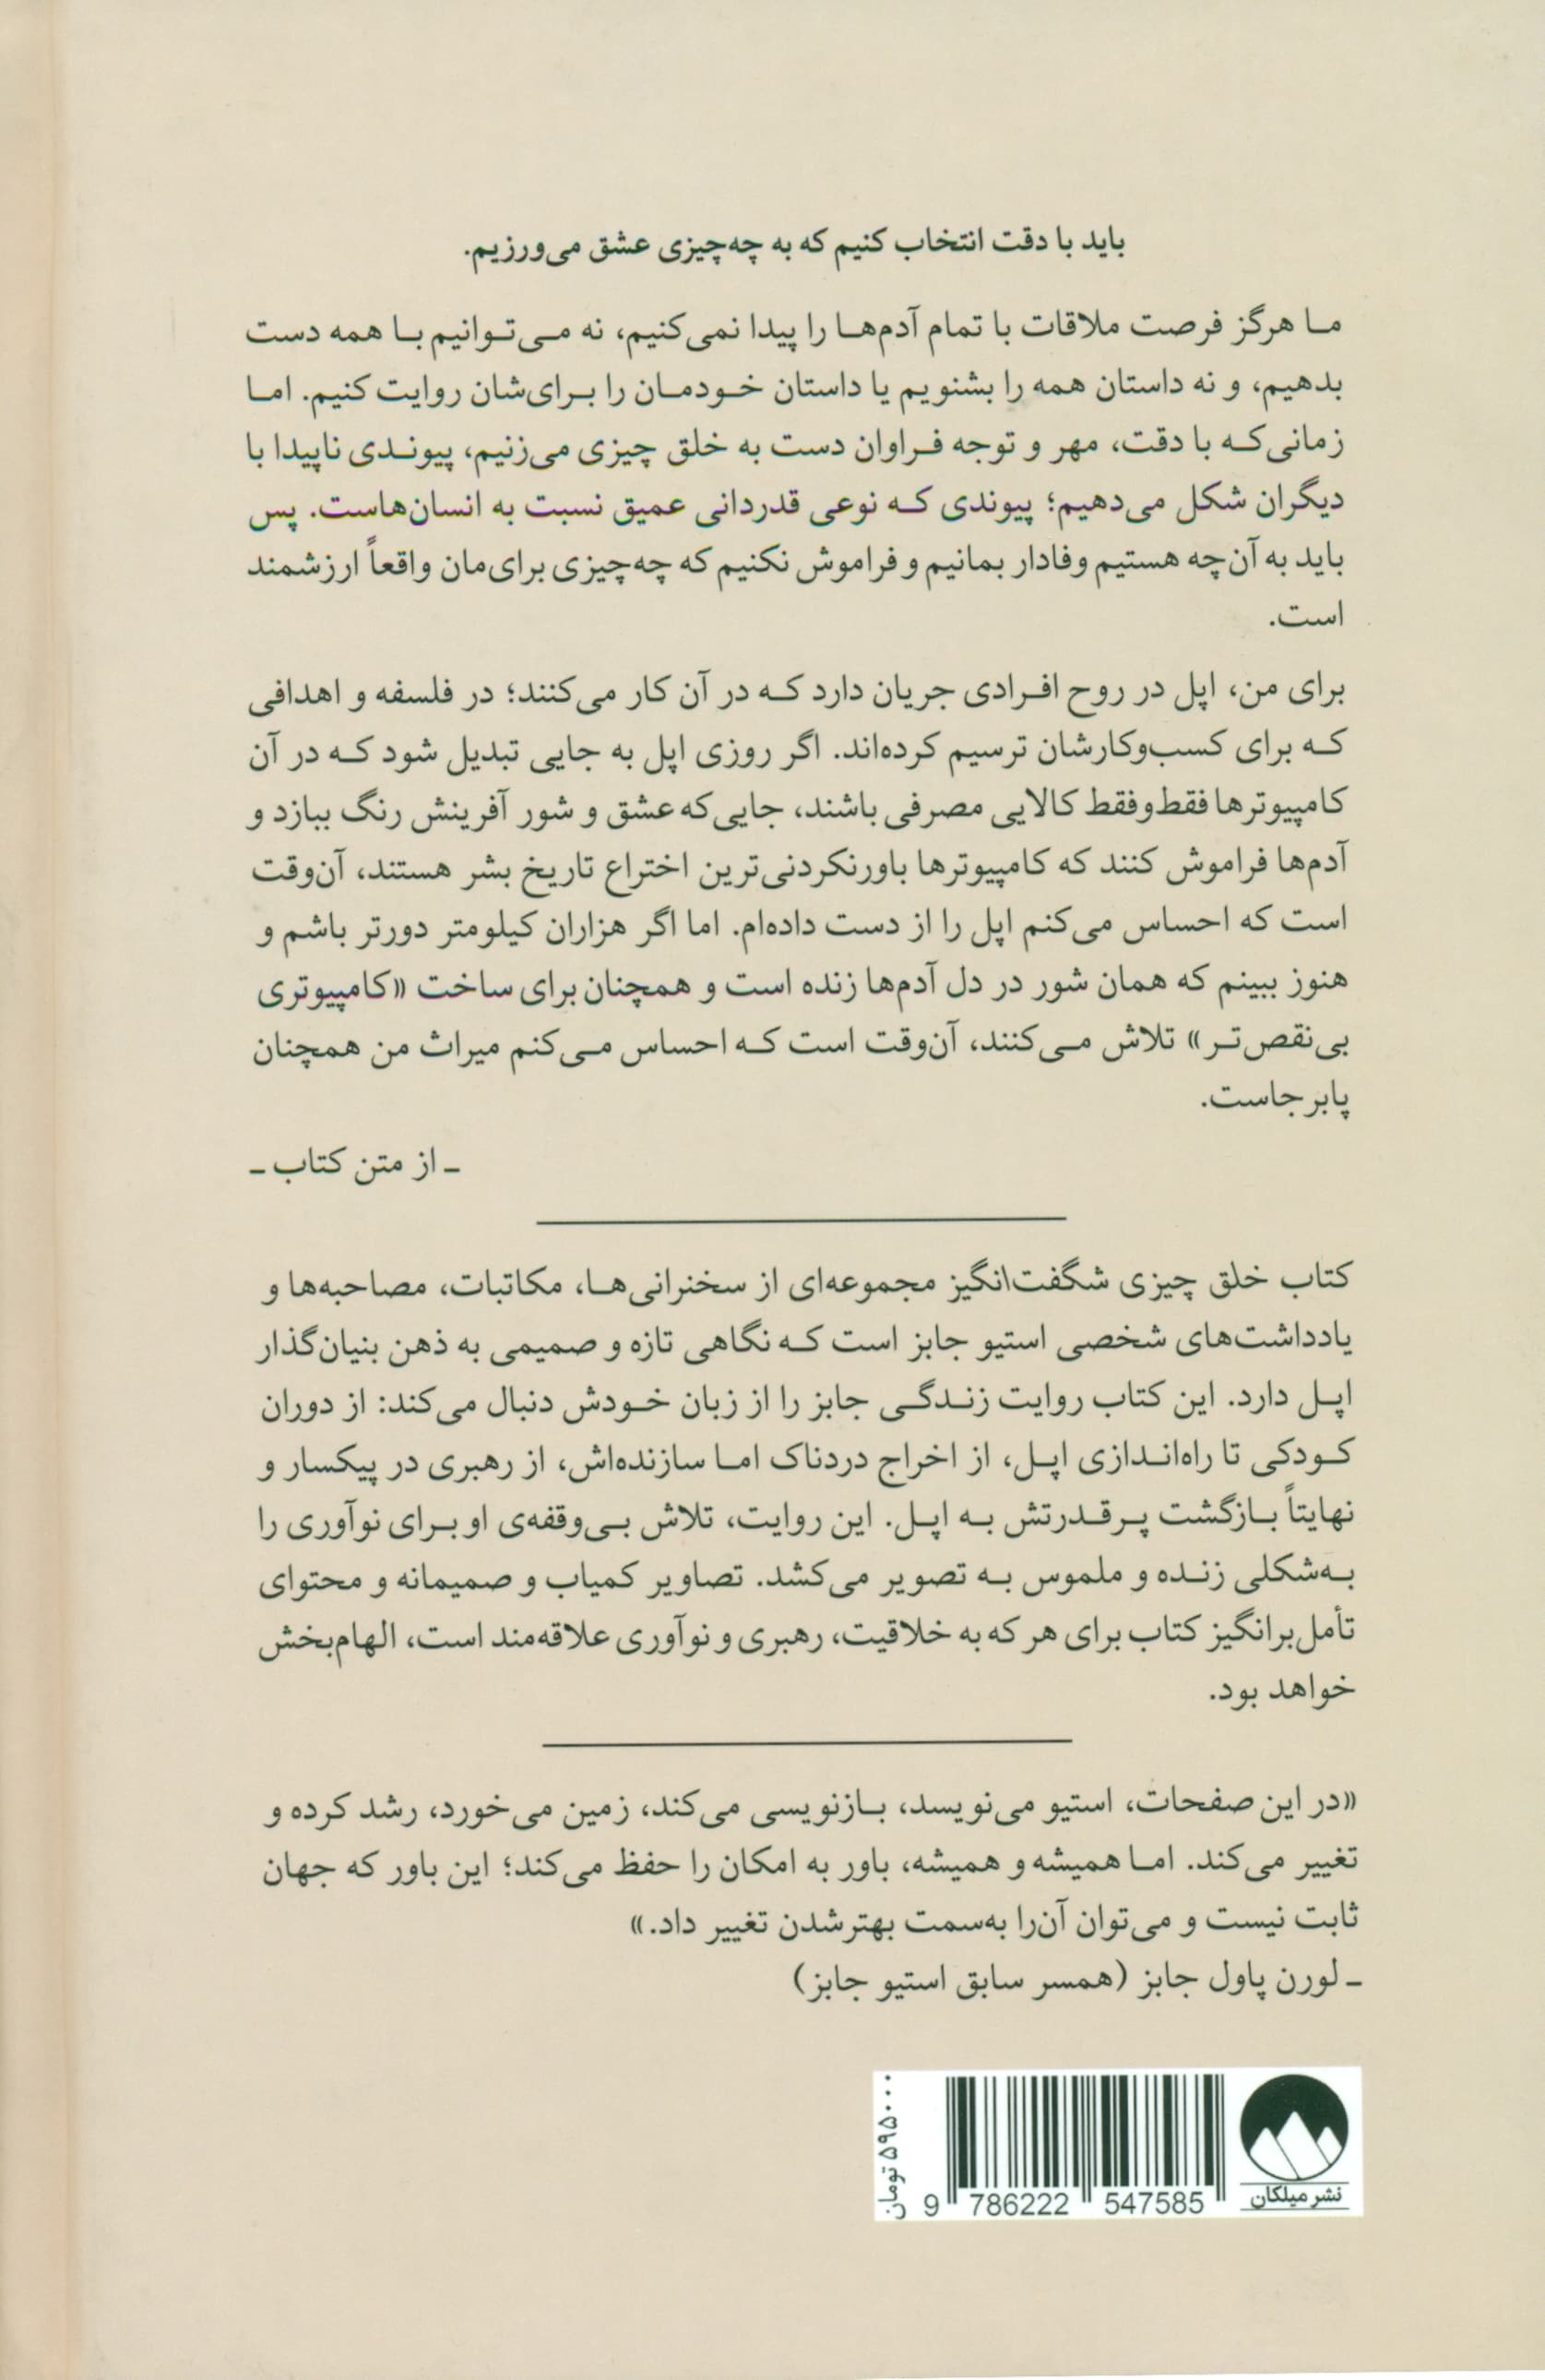 باید با دقت انتخاب کنیم که به چه‌چیزی عشق می‌ورزیم.
ما هرگز فرصت ملاقات با تمام آدم‌ها را پیدا نمی‌کنیم، نه می‌توانیم با همه دست
بدهیم، و نه داستان همه را بشنویم یا داستان خودمان را برای‌شان روایت کنیم. اما
زمانی‌که با دقت، مهر و توجه فراوان دست به خلق چیزی می‌زنیم، پیوندی ناپیدا با
دیگران شکل می‌دهیم؛ پیوندی که نوعی قدردانی عمیق نسبت به انسان‌هاست. پس
باید به آن‌چه هستیم وفادار بمانیم و فراموش نکنیم که چه‌چیزی برای‌مان واقعاً ارزشمند
است.
برای من، اپل در روح افرادی جریان دارد که در آن کار می‌کنند؛ در فلسفه و اهدافی
که برای کسب‌وکارشان ترسیم کرده‌اند. اگر روزی اپل به جایی تبدیل شود که در آن
کامپیوترها فقط‌وفقط کالایی مصرفی باشند، جایی‌که عشق و شور آفرینش رنگ ببازد و
آدم‌ها فراموش کنند که کامپیوترها باورنکردنی‌ترین اختراع تاریخ بشر هستند، آن‌وقت
است که احساس می‌کنم اپل را از دست داده‌ام. اما اگر هزاران کیلومتر دورتر باشم و
هنوز ببینم که همان شور در دل آدم‌ها زنده است و همچنان برای ساخت «کامپیوتری
بی‌نقص‌تر» تلاش می‌کنند، آن‌وقت است که احساس می‌کنم میراث من همچنان
پابرجاست.
ـ از متن کتاب ـ
کتاب خلق چیزی شگفت‌انگیز مجموعه‌ای از سخنرانی‌ها، مکاتبات، مصاحبه‌ها و
یادداشت‌های شخصی استیو جابز است که نگاهی تازه و صمیمی به ذهن بنیان‌گذار
اپل دارد. این کتاب روایت زندگی جابز را از زبان خودش دنبال می‌کند: از دوران
کودکی تا راه‌اندازی اپل، از اخراج دردناک اما سازنده‌اش، از رهبری در پیکسار و
نهایتاً بازگشت پرقدرتش به اپل. این روایت، تلاش بی‌وقفه‌ی او برای نوآوری را
به‌شکلی زنده و ملموس به تصویر می‌کشد. تصاویر کمیاب و صمیمانه و محتوای
تأمل‌برانگیز کتاب برای هر که به خلاقیت، رهبری و نوآوری علاقه‌مند است، الهام‌بخش
خواهد بود.
«در این صفحات، استیو می‌نویسد، بازنویسی می‌کند، زمین می‌خورد، رشد کرده و
تغییر می‌کند. اما همیشه و همیشه، باور به امکان را حفظ می‌کند؛ این باور که جهان
ثابت نیست و می‌توان آن‌را به‌سمت بهترشدن تغییر داد.»
ـ لورن پاول جابز (همسر سابق استیو جابز)
نشر میلکان
9 786222 547585
۵۹۵۰۰۰ تومان